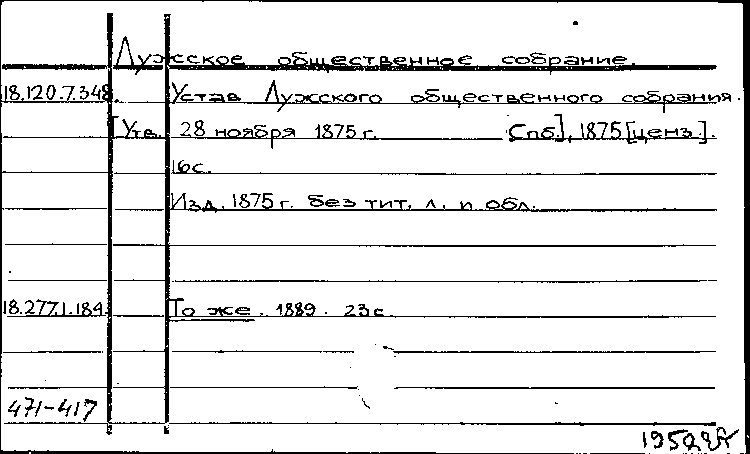 Лужское общественное собрание.
18.120.7.348. Устав Лужского общественного собрания.
[Утв. 28 ноября 1875 г. Спб], 1875 [ценз.].
16 с.
Изд. 1875 г. без тит. л. и обл.
18.277.1.184. То же. 1889. 23 с.
471-417